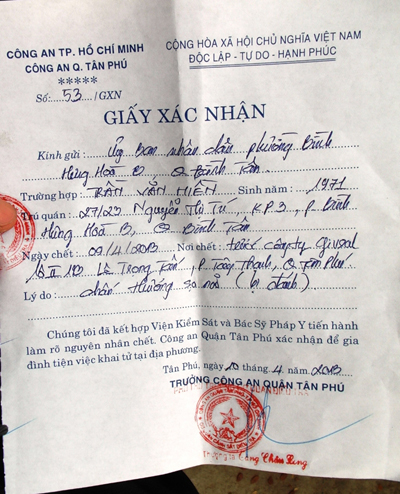 CÔNG AN TP. HỒ CHÍ MINH
CÔNG AN Q. TÂN PHÚ
*****
Số: 53 /GXN
CỘNG HÒA XÃ HỘI CHỦ NGHĨA VIỆT NAM
ĐỘC LẬP - TỰ DO - HẠNH PHÚC
GIẤY XÁC NHẬN
Kính gửi : Ủy ban nhân dân phường Bình
Hưng Hoà B, Q Bình Tân
Trường hợp : TRẦN VĂN HIỀN Sinh năm : 1971
Trú quán : 27/23 Nguyễn Thị Tú, KP3, P. Bình
Hưng Hoà B, Q Bình Tân
Ngày chết : 09/4/2013 Nơi chết : trước công ty
Lô II Lê Trọng Tấn, P Tây Thạnh, Q Tân Phú
Lý do : chấn thương sọ não (bị đánh)
Chúng tôi đã kết hợp Viện Kiểm Sát và Bác Sỹ Pháp Y tiến hành
làm rõ nguyên nhân chết. Công an Quận Tân Phú xác nhận để gia
đình tiện việc khai tử tại địa phương.
Tân Phú, ngày 20 tháng 4 năm 2013
TRƯỞNG CÔNG AN QUẬN TÂN PHÚ